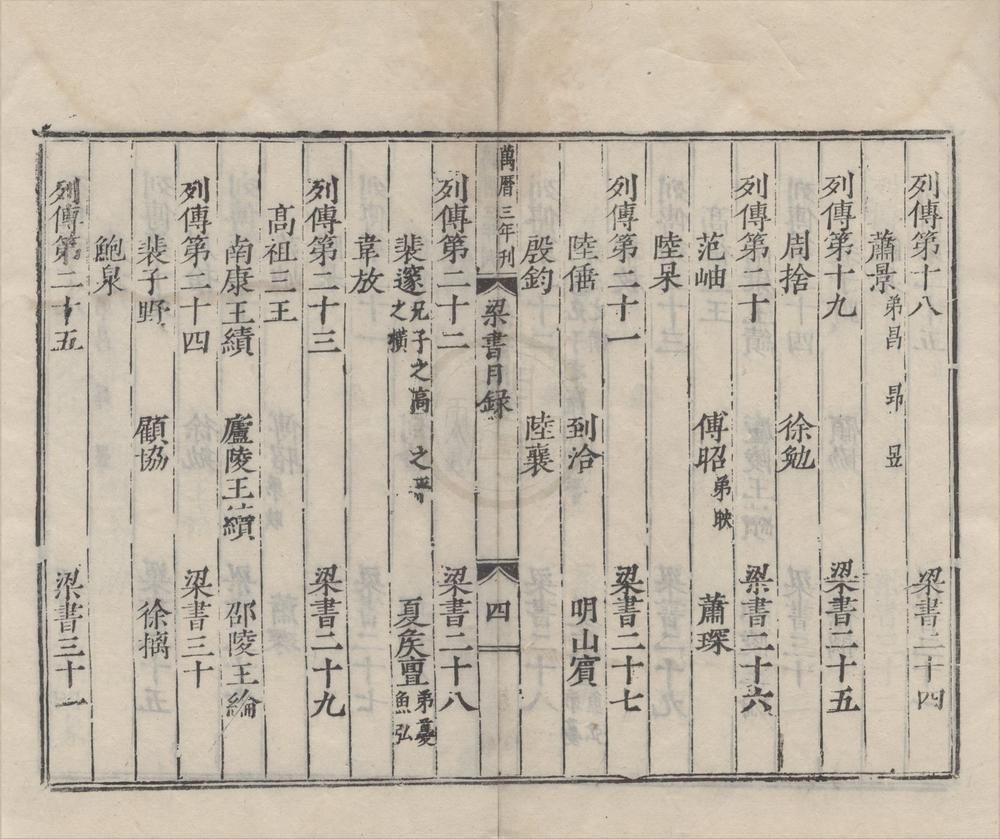 列傳第十八 梁書二十四
蕭景 弟昌 昂 昱
列傳第十九 梁書二十五
周捨 徐勉
列傳第二十 梁書二十六
范岫 傅昭 弟映 蕭琛
陸杲
列傳第二十一 梁書二十七
陸倕 到洽 明山賔
殷鈞 陸襄
萬曆三年刊 梁書目録 四
列傳第二十二 梁書二十八
裴邃 兄子之高 之平 之橫 夏矦亶 弟夔 魚弘
韋放
列傳第二十三 梁書二十九
高祖三王
南康王績 廬陵王續 邵陵王綸
列傳第二十四 梁書三十
裴子野 顧協 徐摛
鮑泉
列傳第二十五 梁書三十一